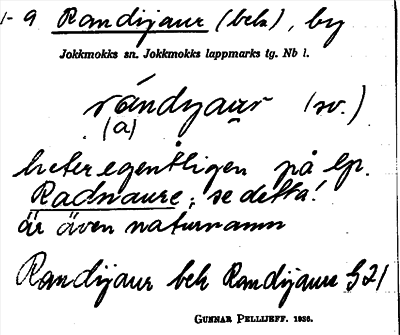 1-9 Randijaur (bek), by
Jokkmokks sn. Jokkmokks lappmarks tg. Nb l.
rándyaur (sv.)
(a)
heter egentligen på lp.
Radnaure; se detta!
är även naturnamn
Randijaur bek Randijaure § 21
GUNNAR PELLIJEFF. 1936.